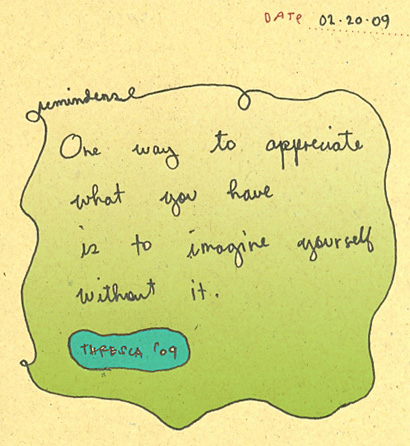 DATE 02.20.09
reminders!
One way to appreciate
what you have
is to imagine yourself
without it.
THRESCA '09